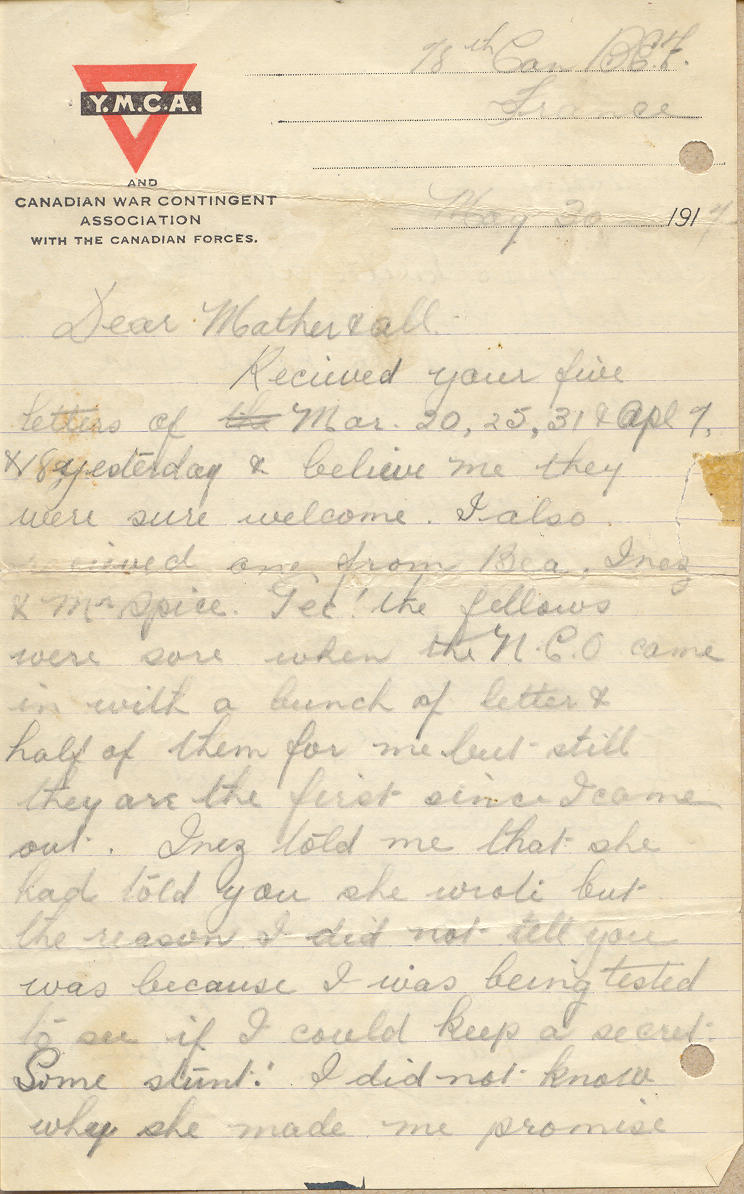 78th Can B.E.F.
France
Y.M.C.A.
AND
CANADIAN WAR CONTINGENT
ASSOCIATION
WITH THE CANADIAN FORCES.
May 30 1917
Dear Mother & all.
Recieved your five
letters of the Mar. 20, 25, 31 & Apl 7,
& 18 yesterday & believe me they
were sure welcome. I also
recieved one from Bea, Inez
& Mr Spice. Gee! the fellows
were sore when the N.C.O came
in with a bunch of letter &
half of them for me but still
they are the first since I came
out. Inez told me that she
had told you she wrote but
the reason I did not tell you
was because I was being tested
to see if I could keep a secret.
Some stunt! I did not know
why she made me promise